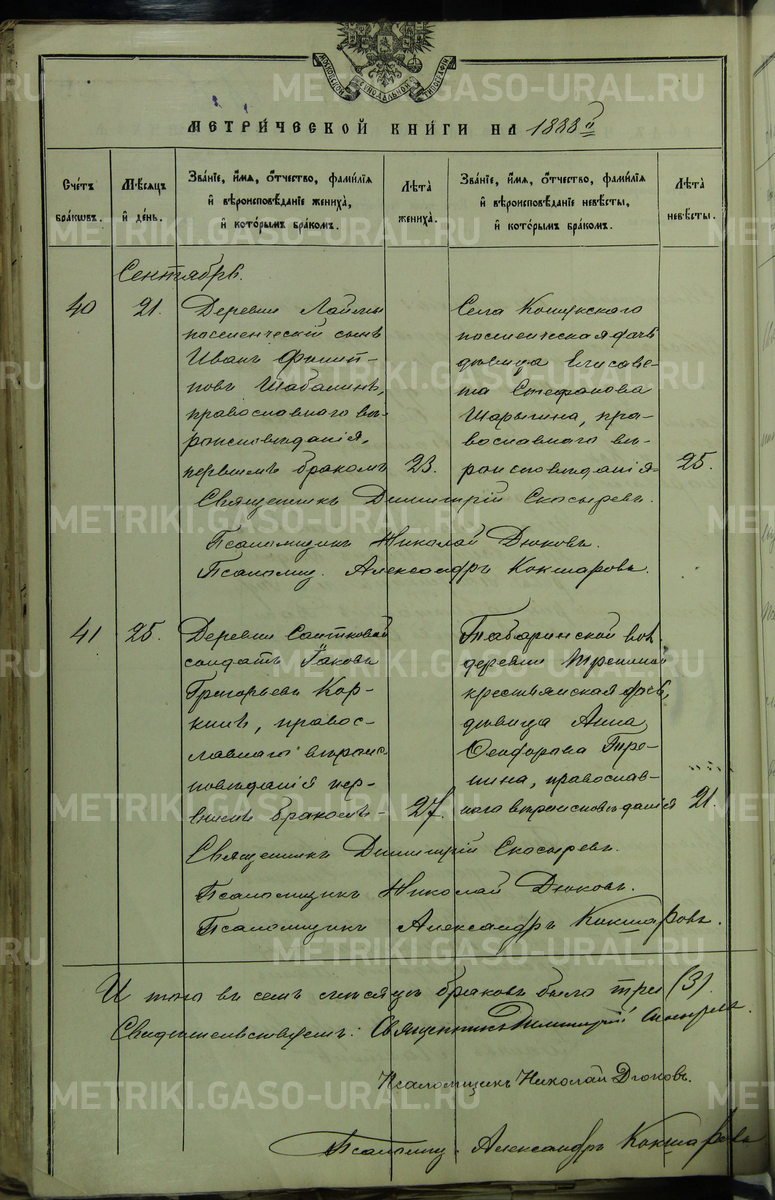 МОСКОВСКОЙ СѴНОДАЛЬНОЙ ТИПОГРАФІИ
МЕТРИ́ЧЕСКОЙ КНИ́ГИ НА 1888й
Сче́тъ бра́кѡвъ.
Мѣ́сѧцъ и҆ де́нь.
Зва́нїе, и҆́мѧ, ѻ҆́тчество, фами́лїѧ и҆ вѣроисповѣ́данїе жениха̀, и҆ кото́рымъ бра́комъ.
Лѣ́та жениха̀.
Зва́нїе, и҆́мѧ, ѻ҆́тчество, фами́лїѧ и҆ вѣроисповѣ́данїе невѣ́сты, и҆ кото́рымъ бра́комъ.
Лѣ́та невѣ́сты.
Сентябрь.
40
21.
Деревни
поселенческій сынъ
Иванъ Филип-
повъ Шабалинъ,
православнаго вѣ-
роисповѣданія,
первымъ бракомъ
23.
Села Кошукскаго
поселенческая дочь
дѣвица Елисаве-
та Стефанова
Шарыгина, пра-
вославнаго вѣ-
роисповѣданія
25.
Священникъ Димитрій Скосыревъ.
Псаломщикъ Николай Дюковъ.
Псаломщ. Александръ Кокшаровъ.
41
25.
Деревни
солдатъ Іаковъ
Григорьевъ Кор-
кинъ, правос-
лавнаго вѣроис-
повѣданія пер-
вымъ бракомъ-
27.
Табаринской вол.
деревни
крестьянская дочь,
дѣвица Анна
Ѳеодорова Тре-
пина, православ-
наго вѣроисповѣданія
21.
Священникъ Димитрій Скосыревъ.
Псаломщикъ Николай Дюковъ.
Псаломщикъ Александръ Кокшаровъ.
Итого въ семъ мѣсяцѣ браковъ было три (3).
Свидѣтельствуемъ: Священникъ Димитрій Скосыревъ.
Псаломщикъ Николай Дюковъ.
Псаломщ. Александръ Кокшаровъ
METRIKI.GASO-URAL.RU